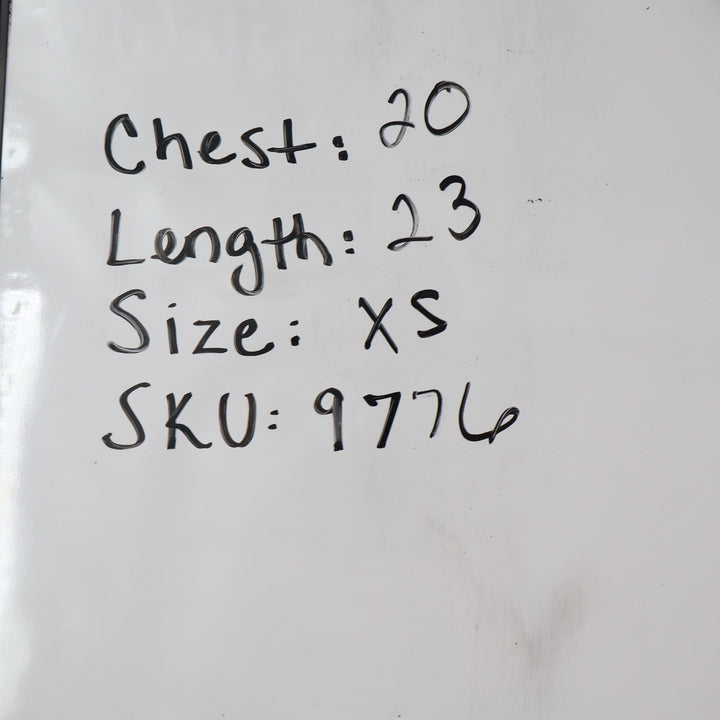 Chest: 20
Length: 23
Size: XS
SKU: 9776